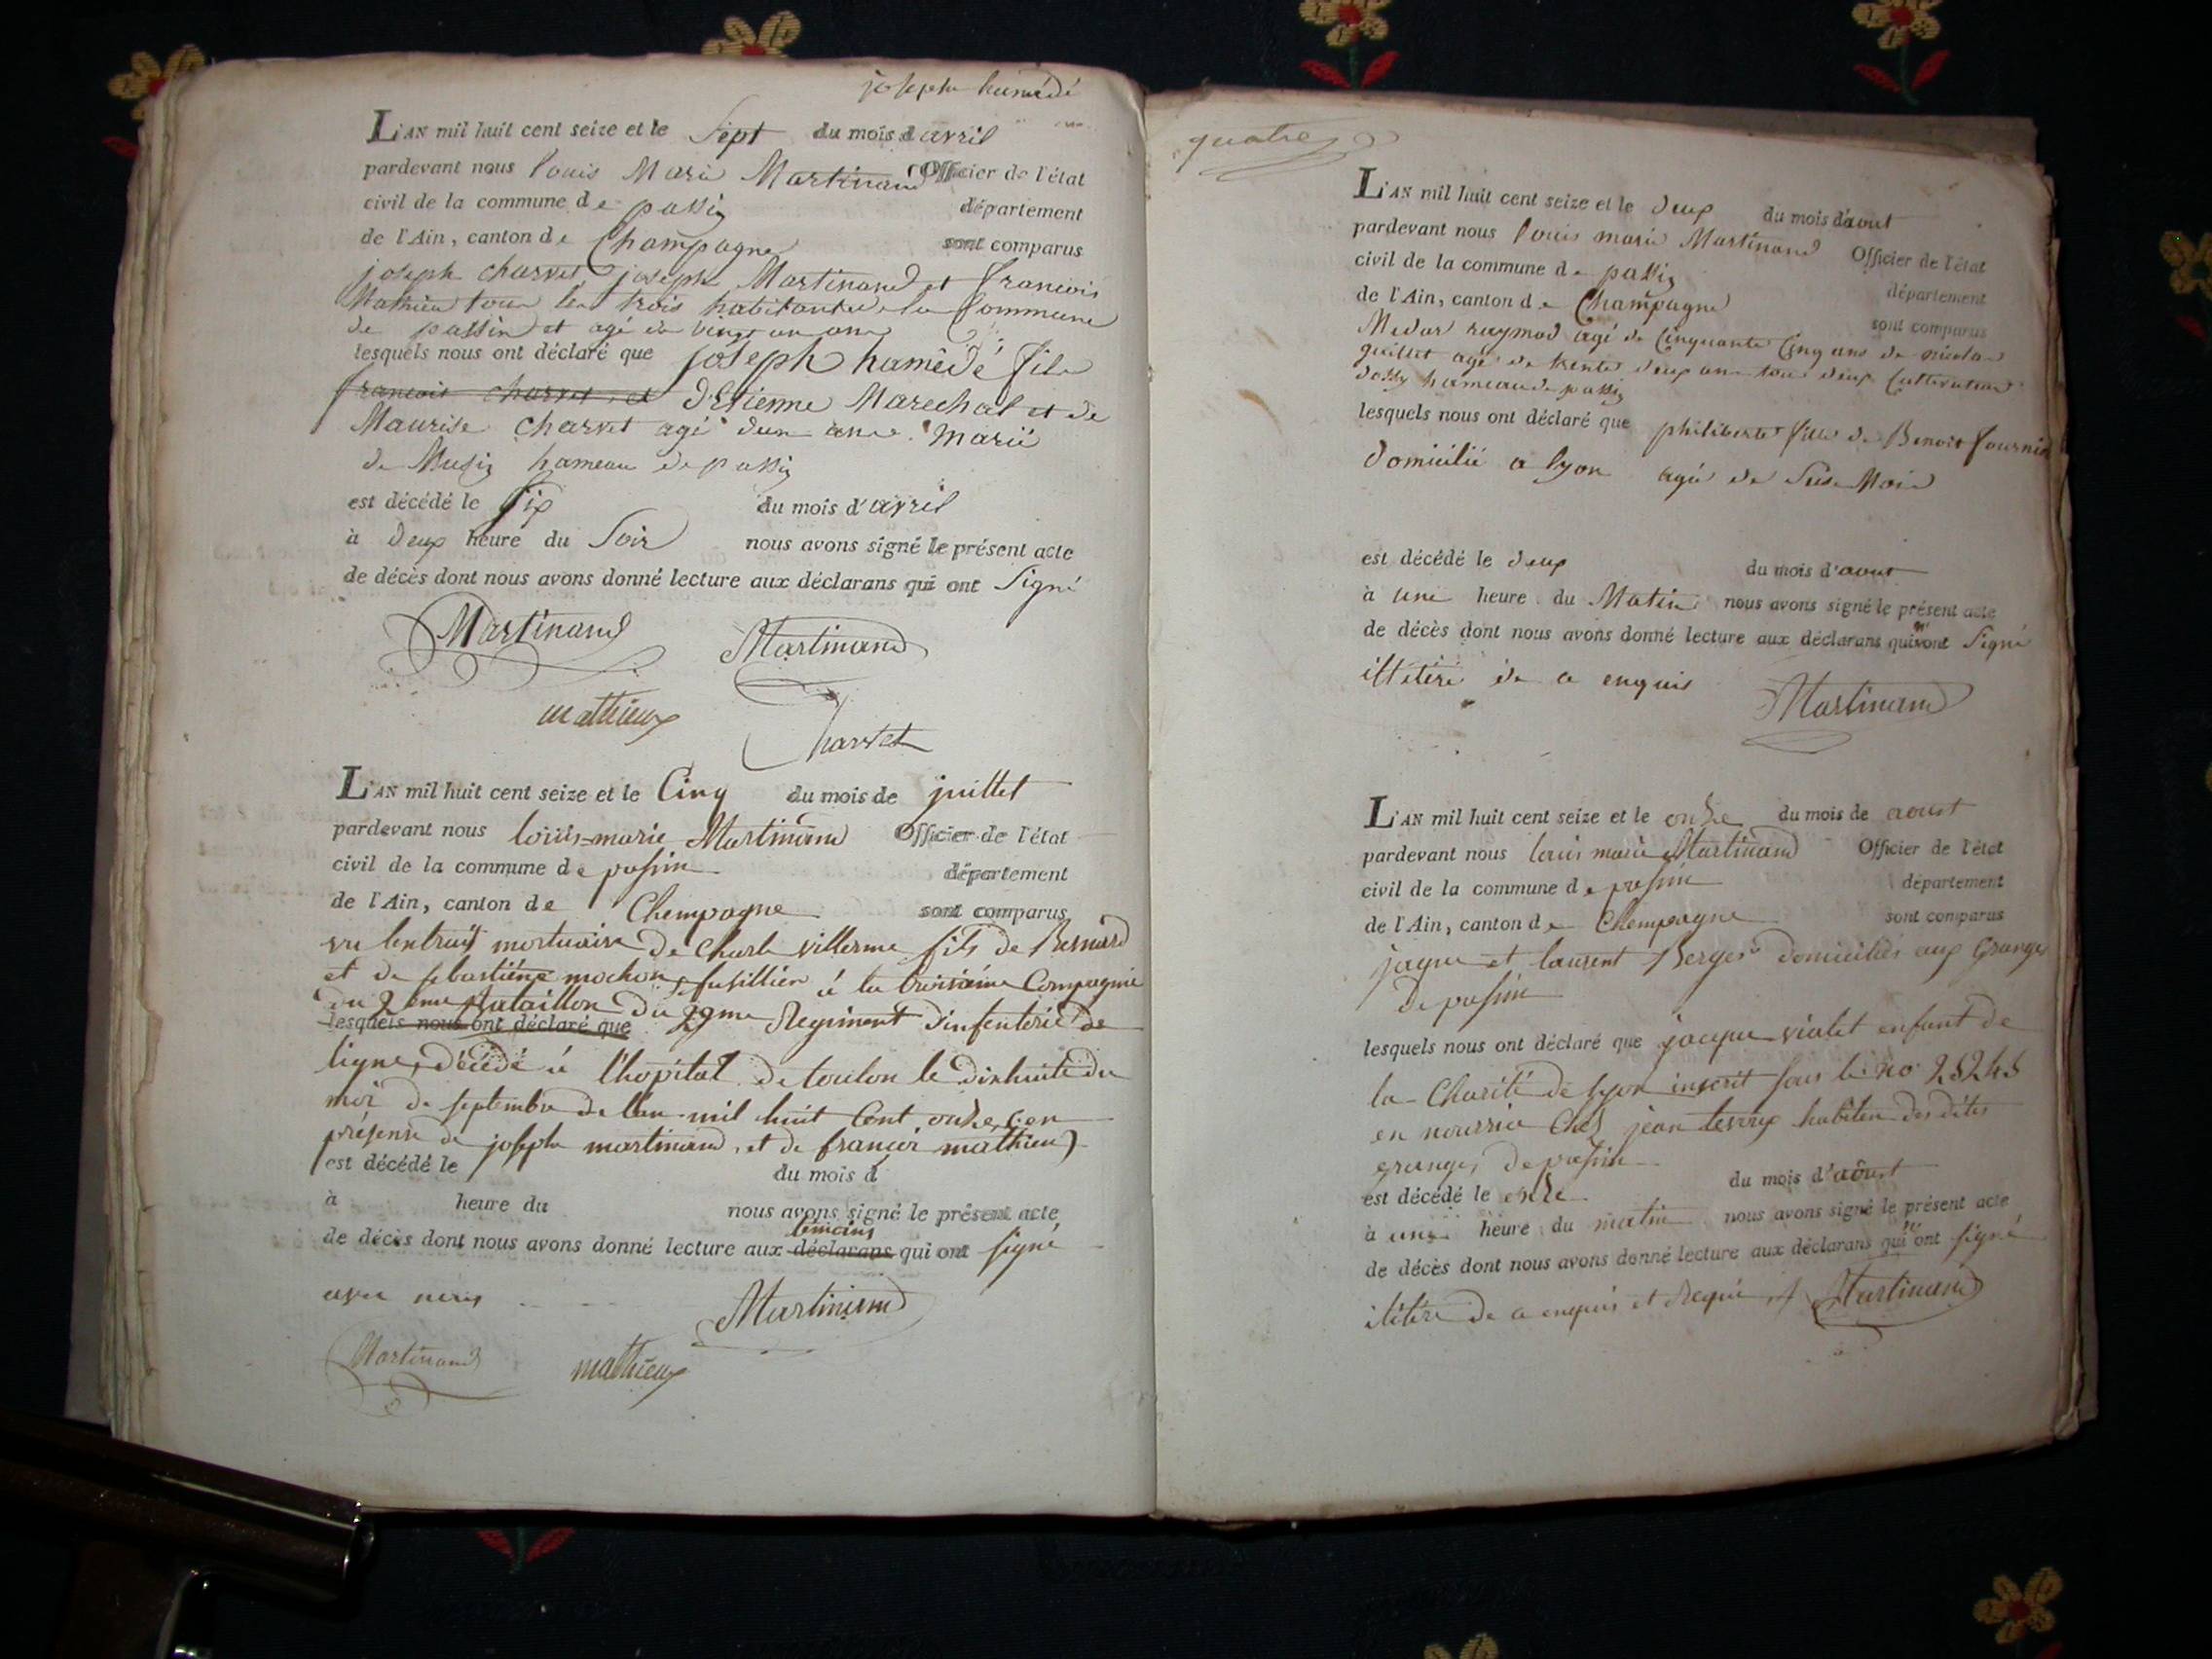 joseph hamédé
L'AN mil huit cent seize et le Sept du mois d avril
pardevant nous louis Marie Martinand Officier de l'état
civil de la commune de passin département
de l'Ain, canton de Champagne sont comparus
joseph charvet joseph Martinand et francois
Mathieu tous les trois habitants de la Commune
de passin et agé de vingt un ans
lesquels nous ont déclaré que joseph hamêdé fils
francois charvet et d'Etienne Marechal et de
Maurise Charvet agé d'un an
de hameau de passin
est décédé le six du mois d'avril
à deux heure du Soir nous avons signé le présent acte
de décès dont nous avons donné lecture aux déclarans qui ont Signé
Martinand Martinand
mathieux
Charvet
L'AN mil huit cent seize et le Cinq du mois de juillet
pardevant nous louis=marie Martinand Officier de l'état
civil de la commune de passin département
de l'Ain, canton de Champagne sont comparus
vu l'extrait mortuaire de Charle villerme fils de Bernard
et de sebastiéne mochon, fusillier à la troisiéme Compagnie
du 2eme Bataillon Du 29me Regiment d'infenterie de
lesquels nous ont déclaré que
ligne, décédé à l'hopital de toulon le dixhuite du
moi de septembre de l'an mil huit Cent onze, en
présense de joseph martinand, et de françoi mathieu
est décédé le du mois d
à heure du nous avons signé le présent acte
témoins
de décès dont nous avons donné lecture aux déclarans qui ont signé
avec nous Martinand
Martinand mathieux
quatre
L'AN mil huit cent seize et le deux du mois d'aout
pardevant nous louis marie Martinand Officier de l'état
civil de la commune de passin département
de l'Ain, canton de Champagne sont comparus
Medar raymod agé de Cinquante Cinq ans de nicolas
guillet agé de trente deux ans tous deux Cultivateurs
hameau de passin
lesquels nous ont déclaré que philiberte fille de Benoit fournie
domicilié a lyon agé de Sise Mois
est décédé le deux du mois d'aout
à une heure du Matin nous avons signé le présent acte
de décès dont nous avons donné lecture aux déclarans qui n'ont Signé
illétéré de a enquis Martinand
L'AN mil huit cent seize et le onze du mois de aoust
pardevant nous louis marie Martinand Officier de l'état
civil de la commune de passin département
de l'Ain, canton de Champagne sont comparus
jaque et laurent Berger domiciliés aux Granges
de passin
lesquels nous ont déclaré que jacque violet enfant de
la Charité de lyon inscrit sous le no
en nourrice Chez jean habitan des dites
granges de passin
est décédé le onze du mois d'aôust
à une heure du matin nous avons signé le présent acte
de décès dont nous avons donné lecture aux déclarans qui n'ont signé
iletéré de a enquis et requis Martinand